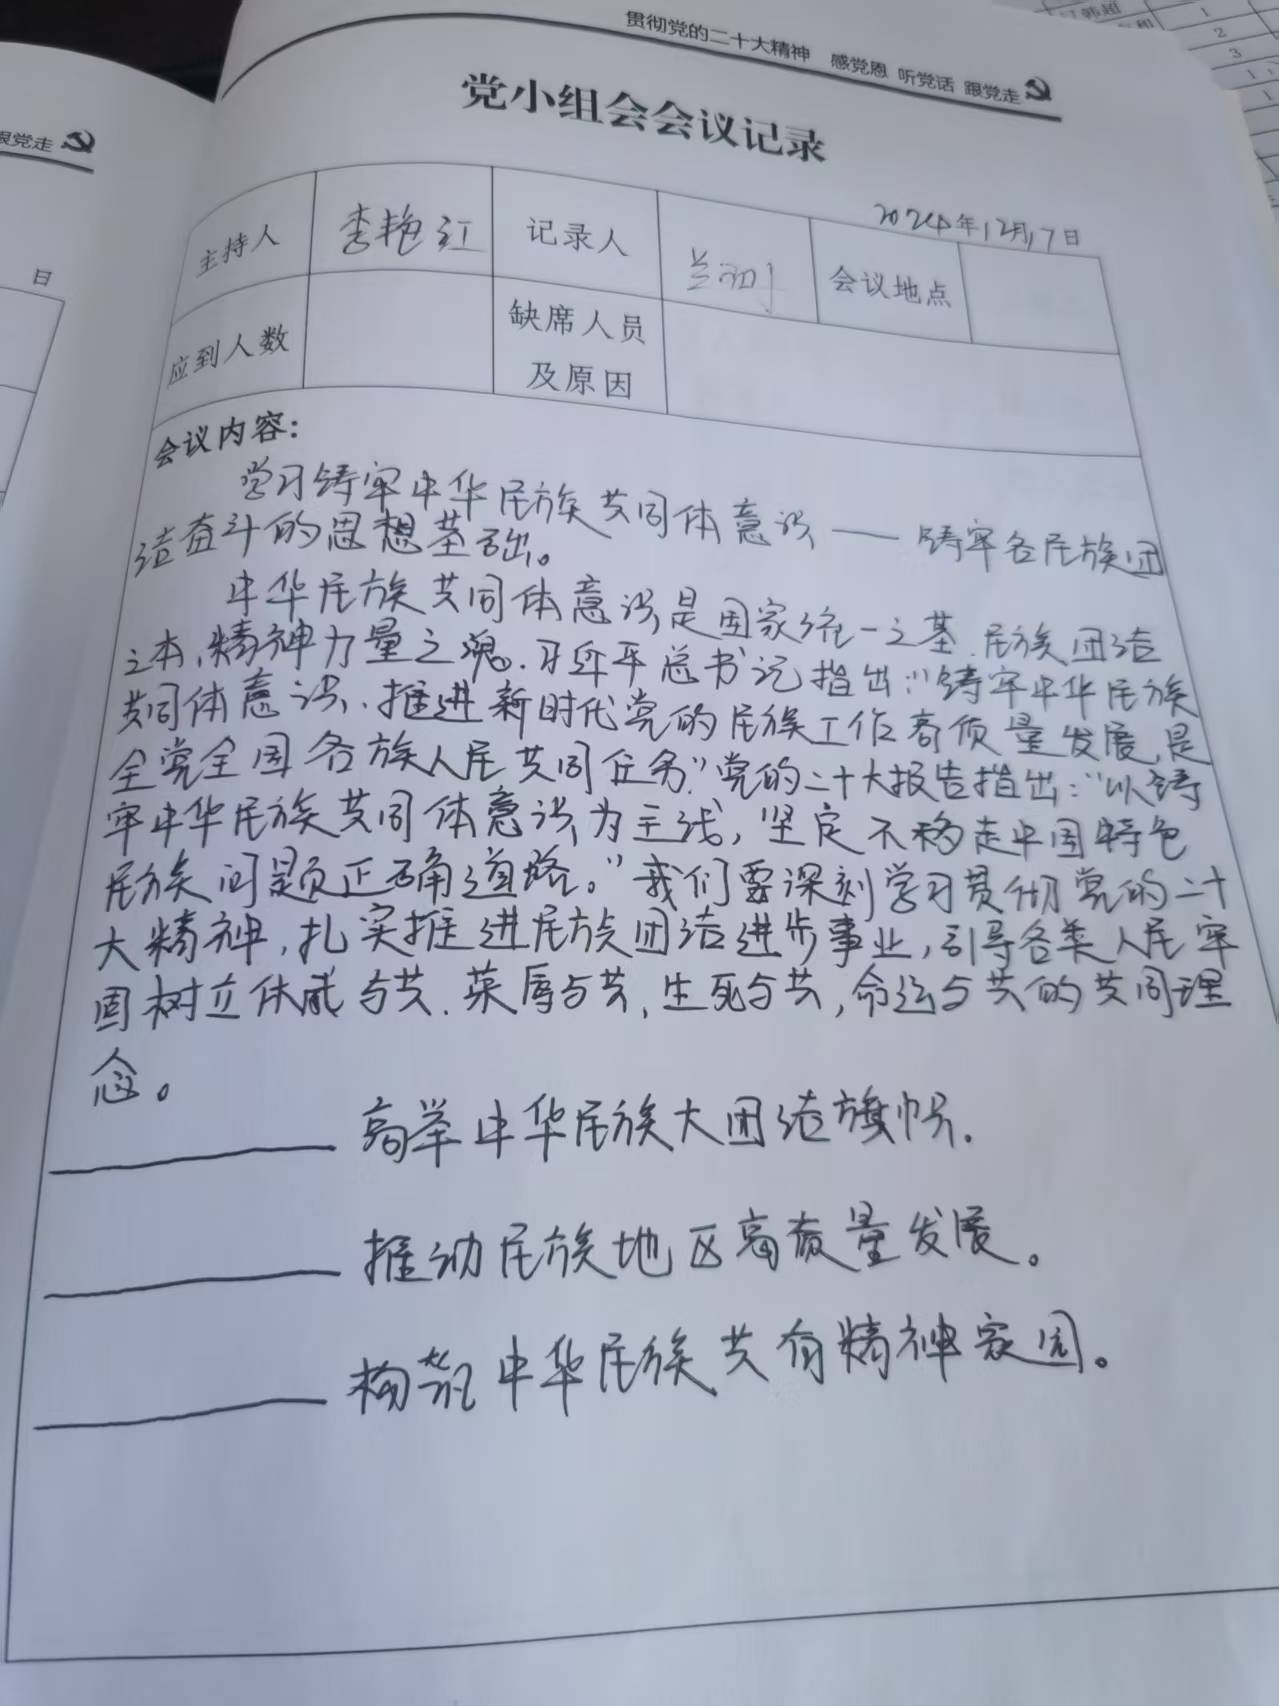 贯彻党的二十大精神 感党恩 听党话 跟党走
党小组会会议记录
跟党走
日
2024年12月17日
主持人 李艳红 记录人 会议地点
应到人数 缺席人员及原因
会议内容:
学习铸牢中华民族共同体意识——铸牢各民族团
结奋斗的思想基础。
中华民族共同体意识是国家统一之基、民族团结
之本、精神力量之魂。习近平总书记指出:"铸牢中华民族
共同体意识、推进新时代党的民族工作高质量发展,是
全党全国各族人民共同任务"党的二十大报告指出:"以铸
牢中华民族共同体意识为主线,坚定不移走中国特色
民族问题正确道路。"我们要深刻学习贯彻党的二十
大精神,扎实推进民族团结进步事业,引导各类人民牢
固树立休戚与共、荣辱与共、生死与共,命运与共的共同理
念。
高举中华民族大团结旗帜.
推动民族地区高质量发展。
构筑中华民族共有精神家园。